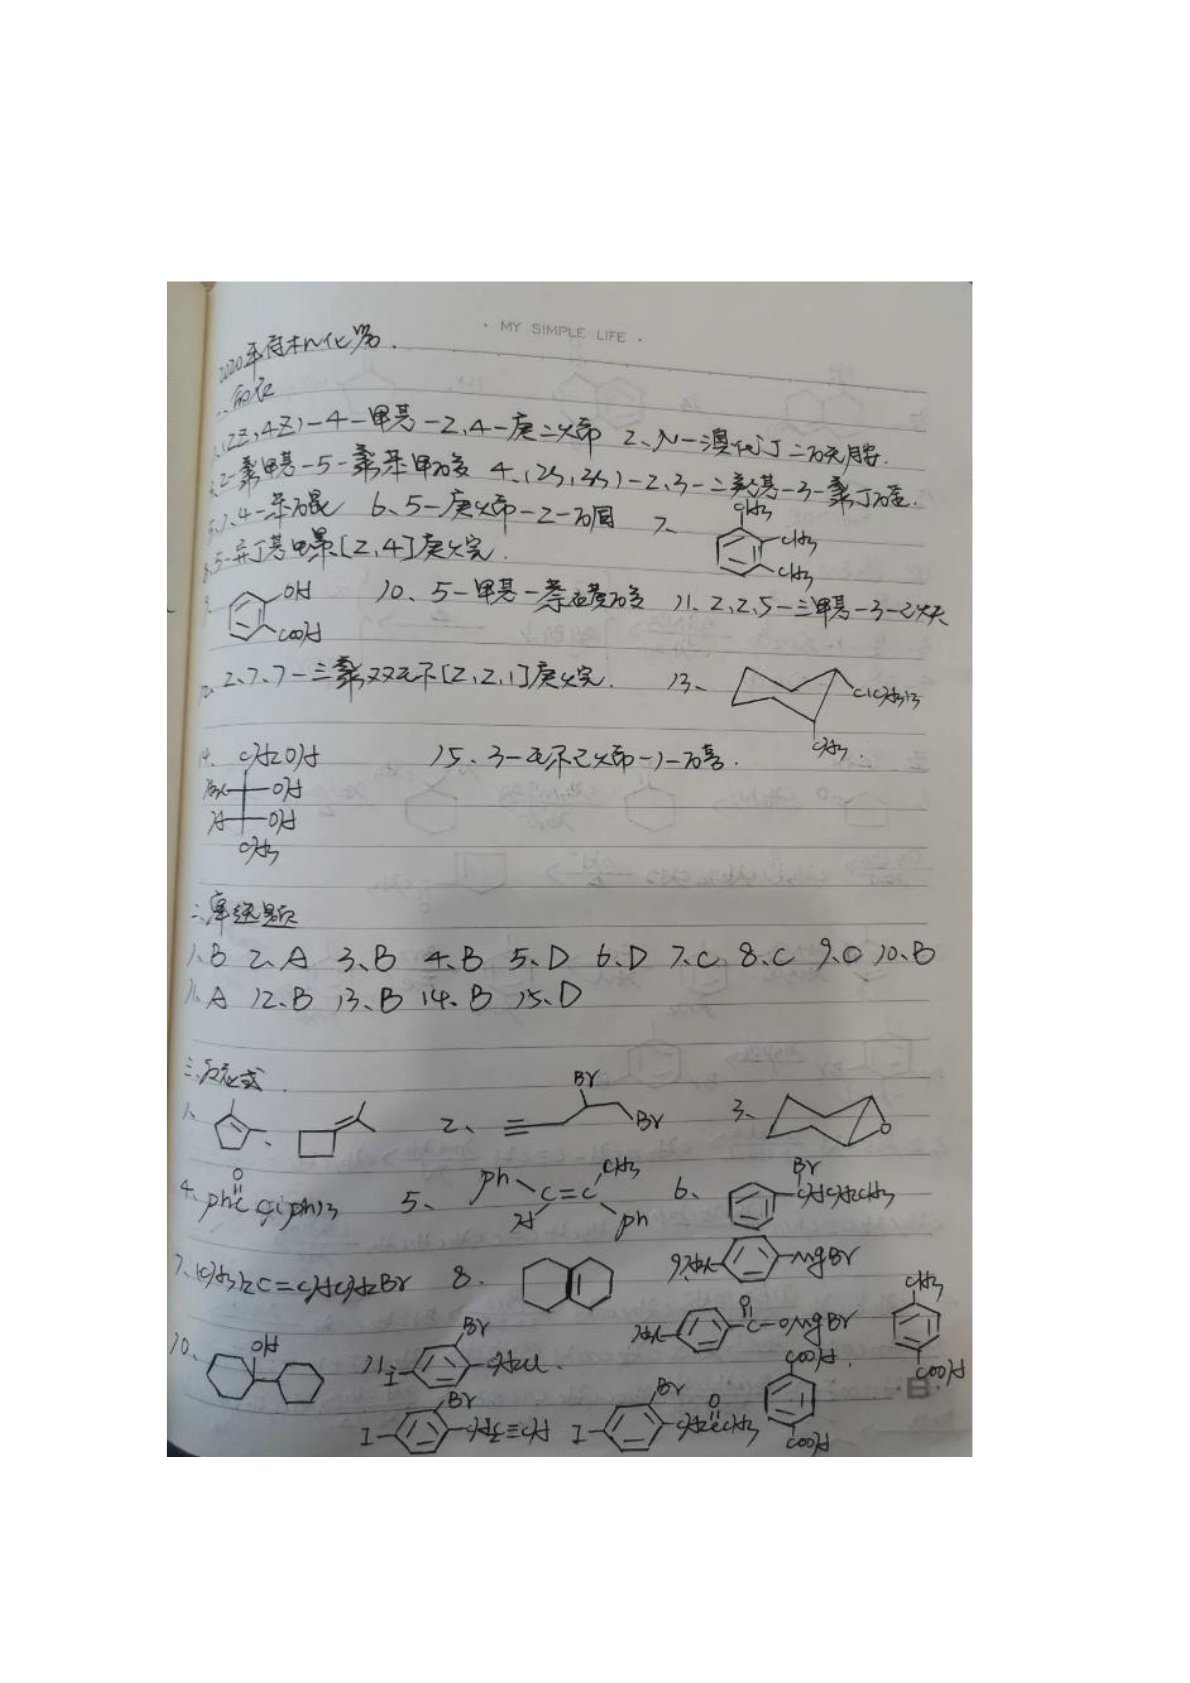 · MY SIMPLE LIFE ·
2020年有机化学.
一. 命名
1、(2Z,4Z)-4-甲基-2,4-庚二烯 2、N-溴代丁二酰胺.
3、2-氯甲基-5-氯苯甲酸 4、(2S,3S)-2,3-二氯基-3-氯丁醛.
5、1,4-萘醌 6、5-庚烯-2-酮 7、CH3 CH3 CH3
8、5-异丁基螺[2,4]庚烷.
9、OH COOH 10、5-甲基-萘磺酸 11、2,2,5-三甲基-3-己炔
12、2,7,7-三氯双环[2,2,1]庚烷. 13、C(CH3)3 CH3.
14、CH2OH 15、3-环己烯-1-醇.
OH
H OH
CH3
二、单选题
1、B 2、A 3、B 4、B 5、D 6、D 7、C 8、C 9、D 10、B
11、A 12、B 13、B 14、B 15、D
三、反应式.
1、 2、Br Br 3、O
4、PhC(O)C(Ph)3 5、Ph H C=C CH3 Ph 6、Br CHCH2CH3
7、(CH3)2C=CHCH2Br 8. 9、MgBr
C O OMgBr CH3 COOH
10、OH 11、I Br CH2Cl.
I Br CH2C≡CH I Br CH2CCH3 O COOH COOH
日